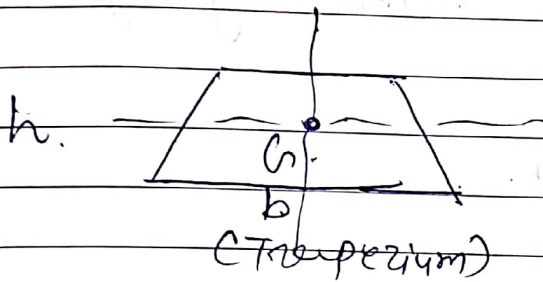 h.
G.
b
(Trapezium)